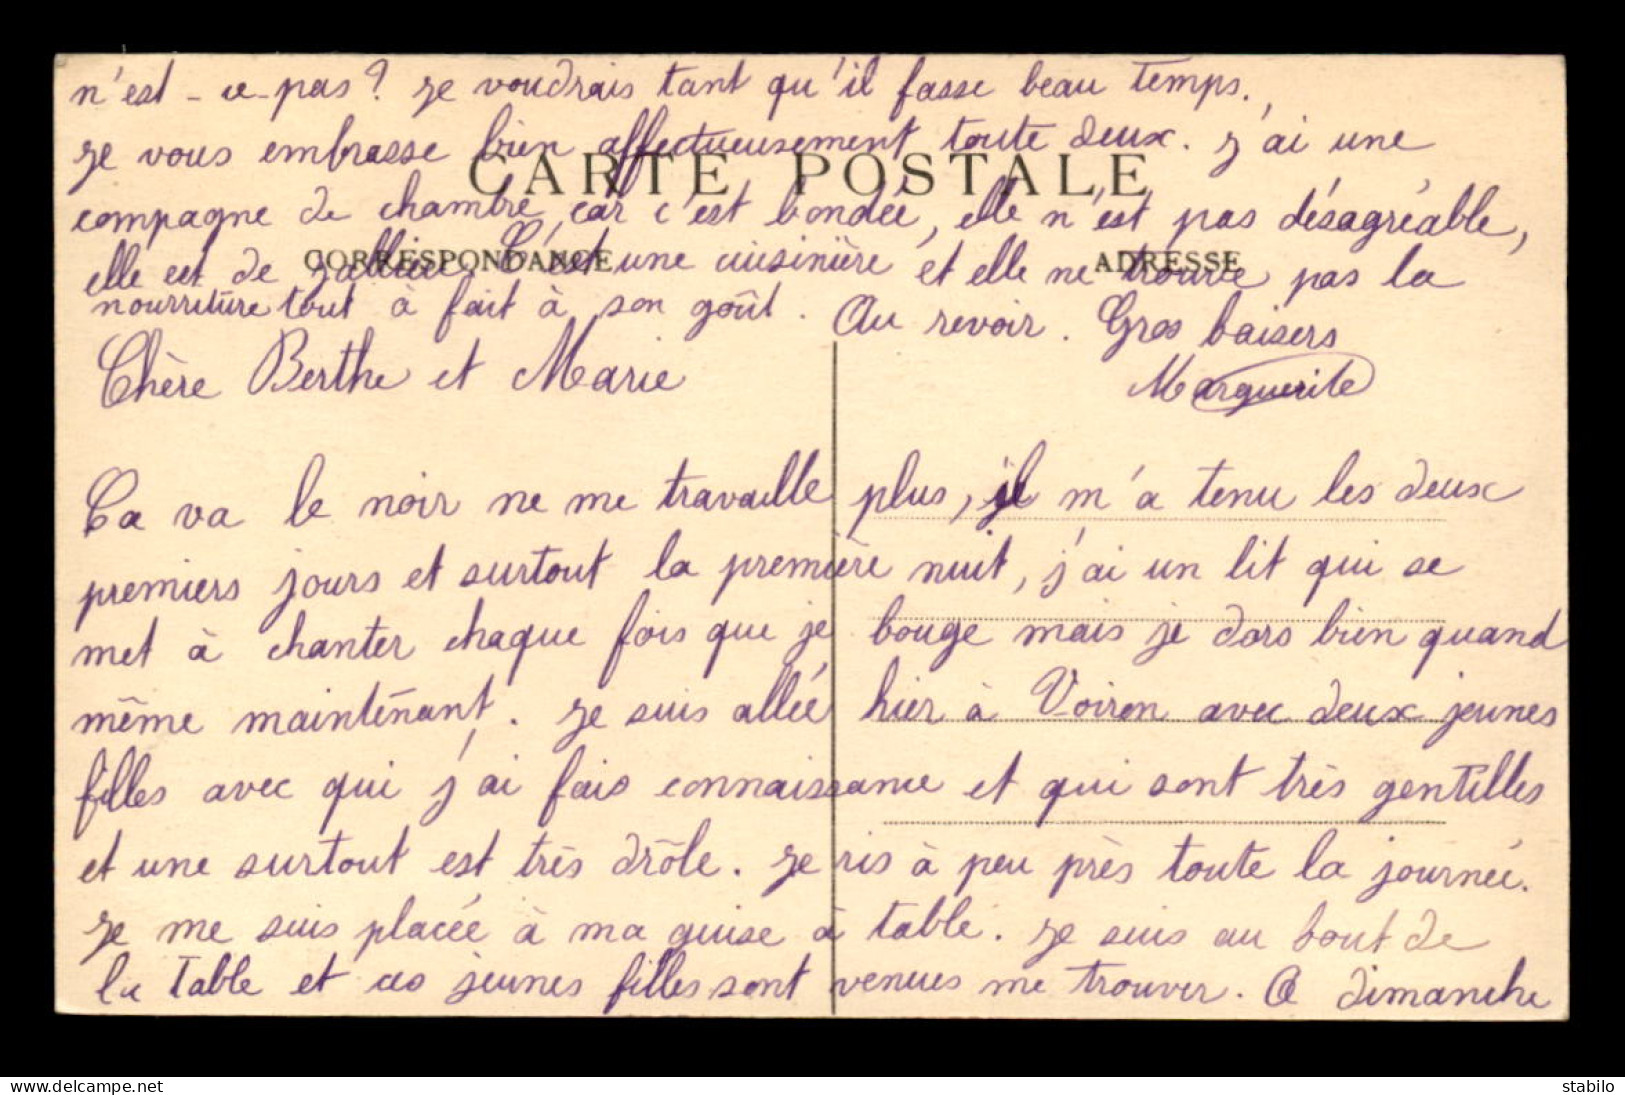 n'est-ce-pas? Je voudrais tant qu'il fasse beau temps.
Je vous embrasse bien affectueusement toute deux. J'ai une
CARTE POSTALE
compagne de chambre, car c'est bondée, elle n'est pas désagréable,
CORRESPONDANCE
ADRESSE
elle est de C'est une cuisinière et elle ne trouve pas la
nourriture tout à fait à son goût. Au revoir. Gros baisers
Marguerite
Chère Berthe et Marie
Ca va le noir ne me travaille plus, il m'a tenu les deux
premiers jours et surtout la première nuit, j'ai un lit qui se
met à chanter chaque fois que je bouge mais je dors bien quand
même maintenant. Je suis allée hier à Voiron avec deux jeunes
filles avec qui j'ai fais connaissance et qui sont très gentilles
et une surtout est très drôle. Je ris à peu près toute la journée.
Je me suis placée à ma guise à table. Je suis au bout de
la table et ces jeunes filles sont venues me trouver. A dimanche
delcampe.net
stabilo